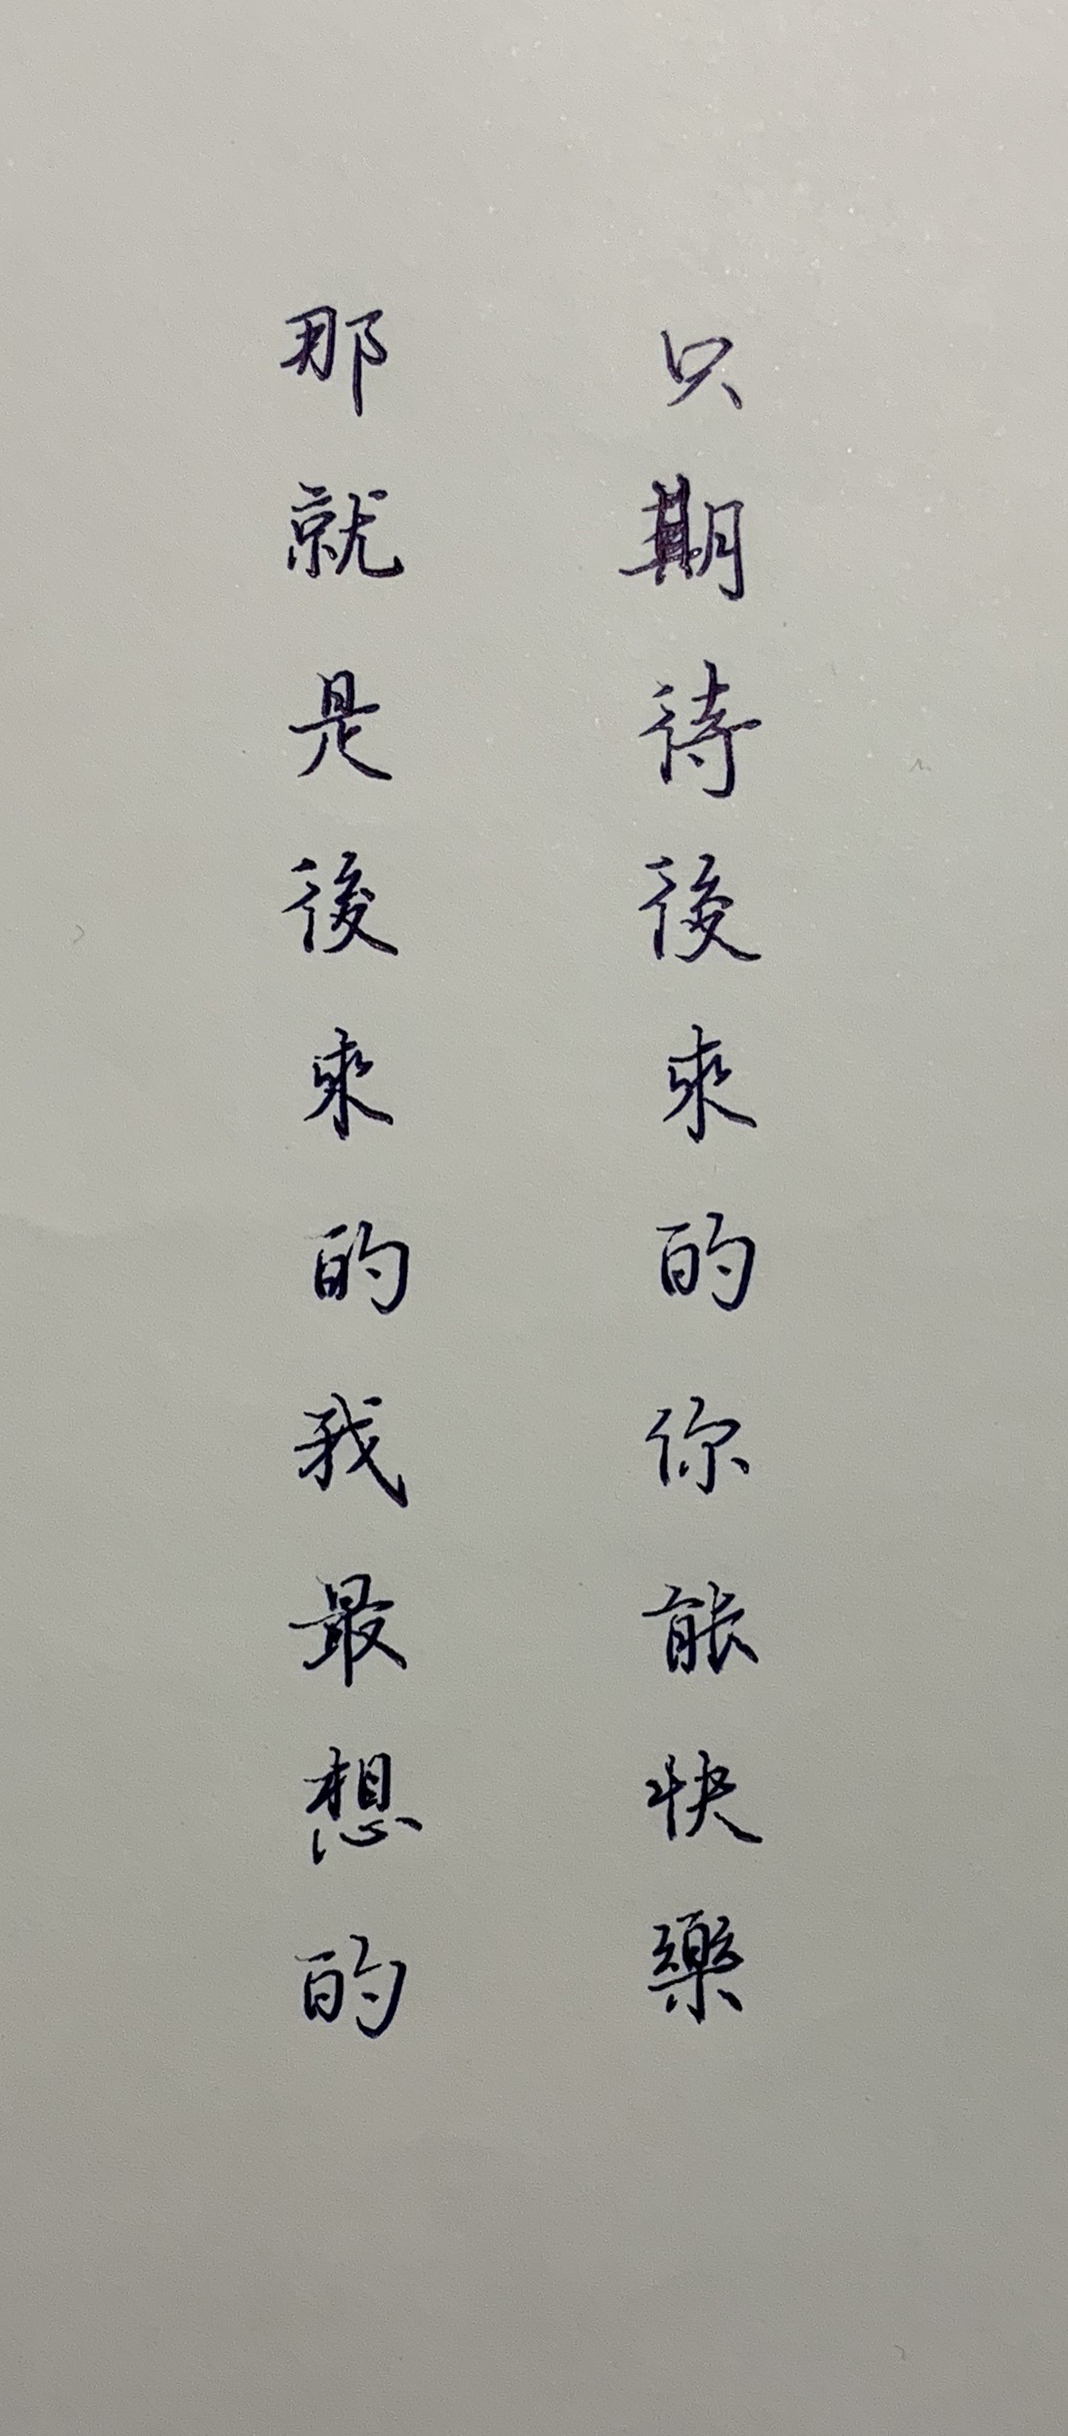 只期待後來的你能快樂
那就是後來的我最想的